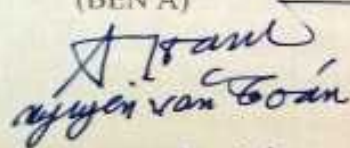 (BÊN A)
Nguyễn Văn Toán